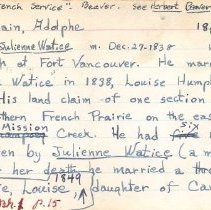 French Service" Beaver. See Herbert Beaver
ain, Adolphe 18
Julienne Watice m. Dec-27-1838
h at Fort Vancouver. He mar
Watice in 1838, Louise Hump
His land claim of one section
thern French Prairie on the ea
Mission Creek. He had six
en by Julienne Watice (a m
her death he married a th
1849
e, Louise daughter of Ca
p.15